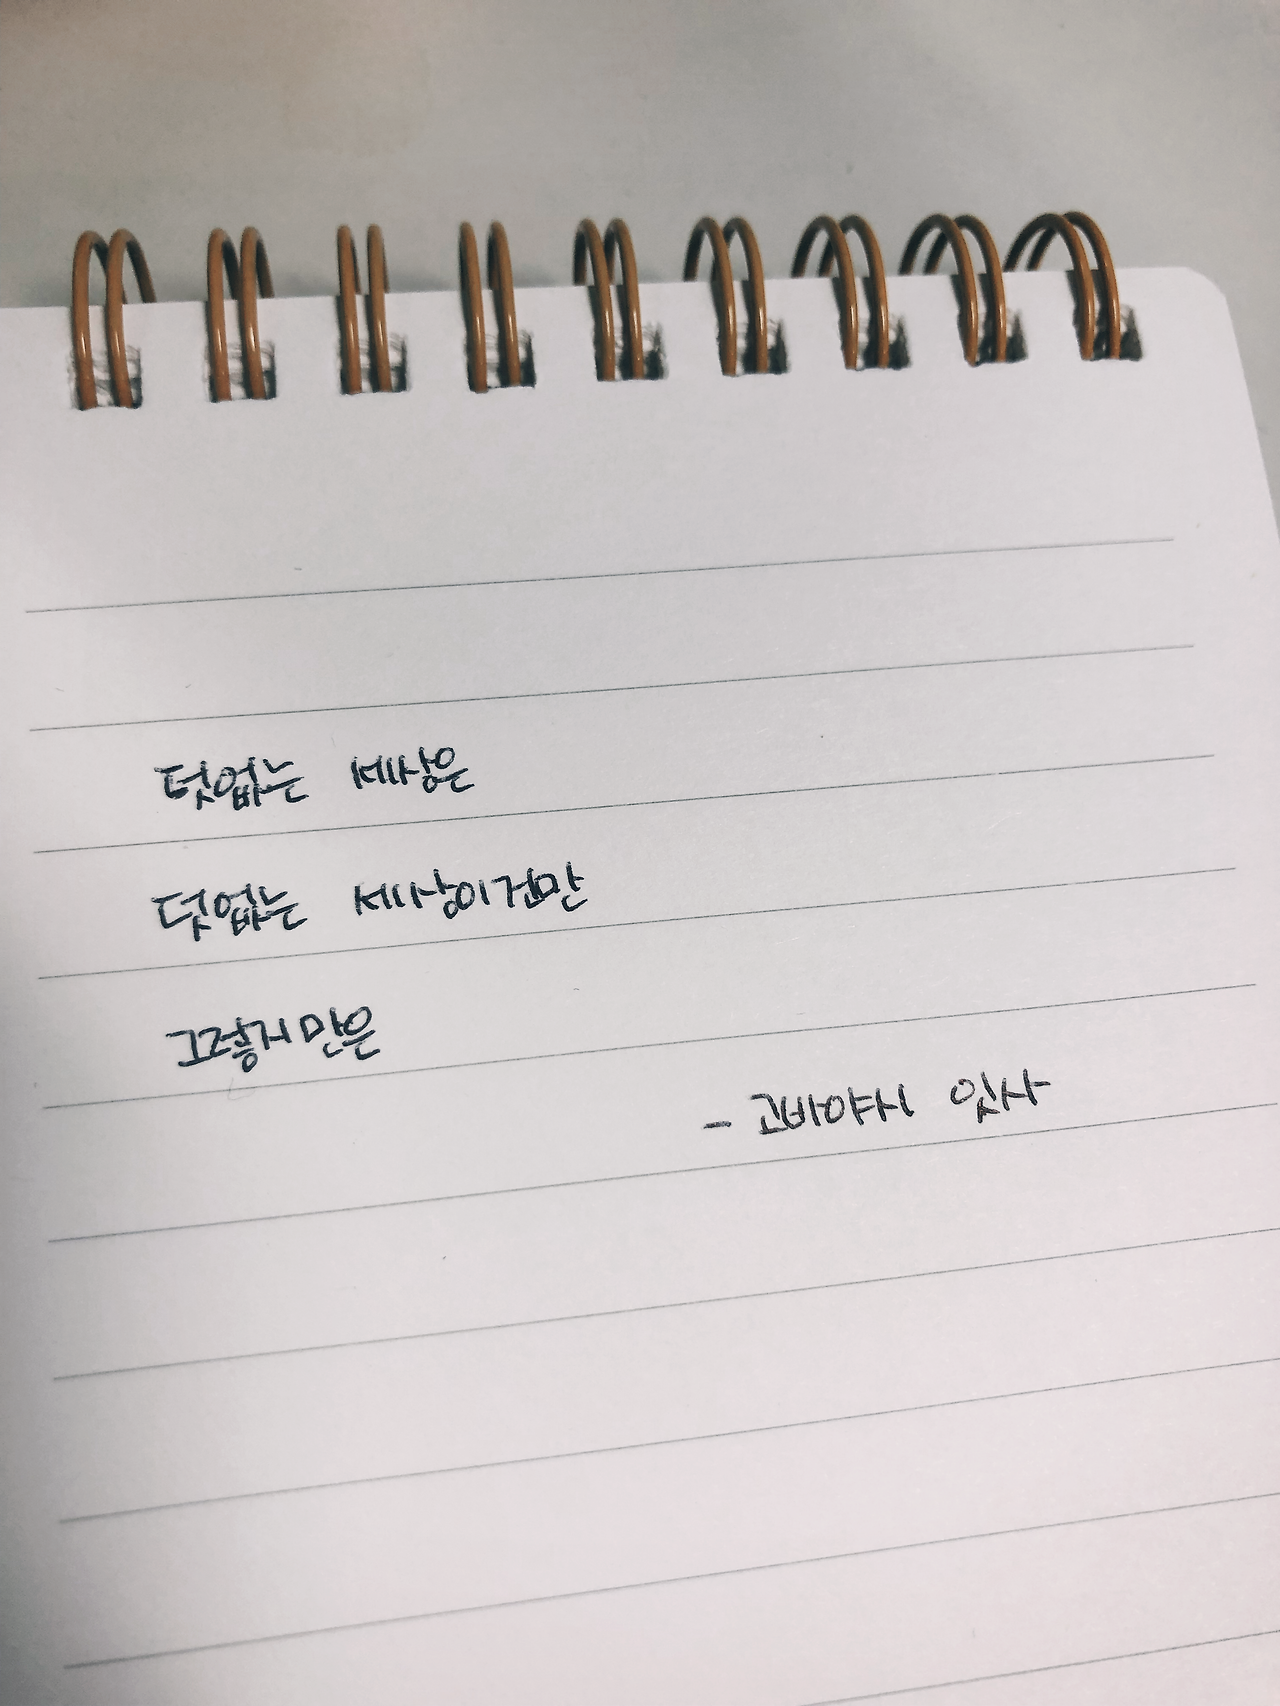 덧없는 세상은
덧없는 세상이건만
그렇지만은
- 고바야시 잇사